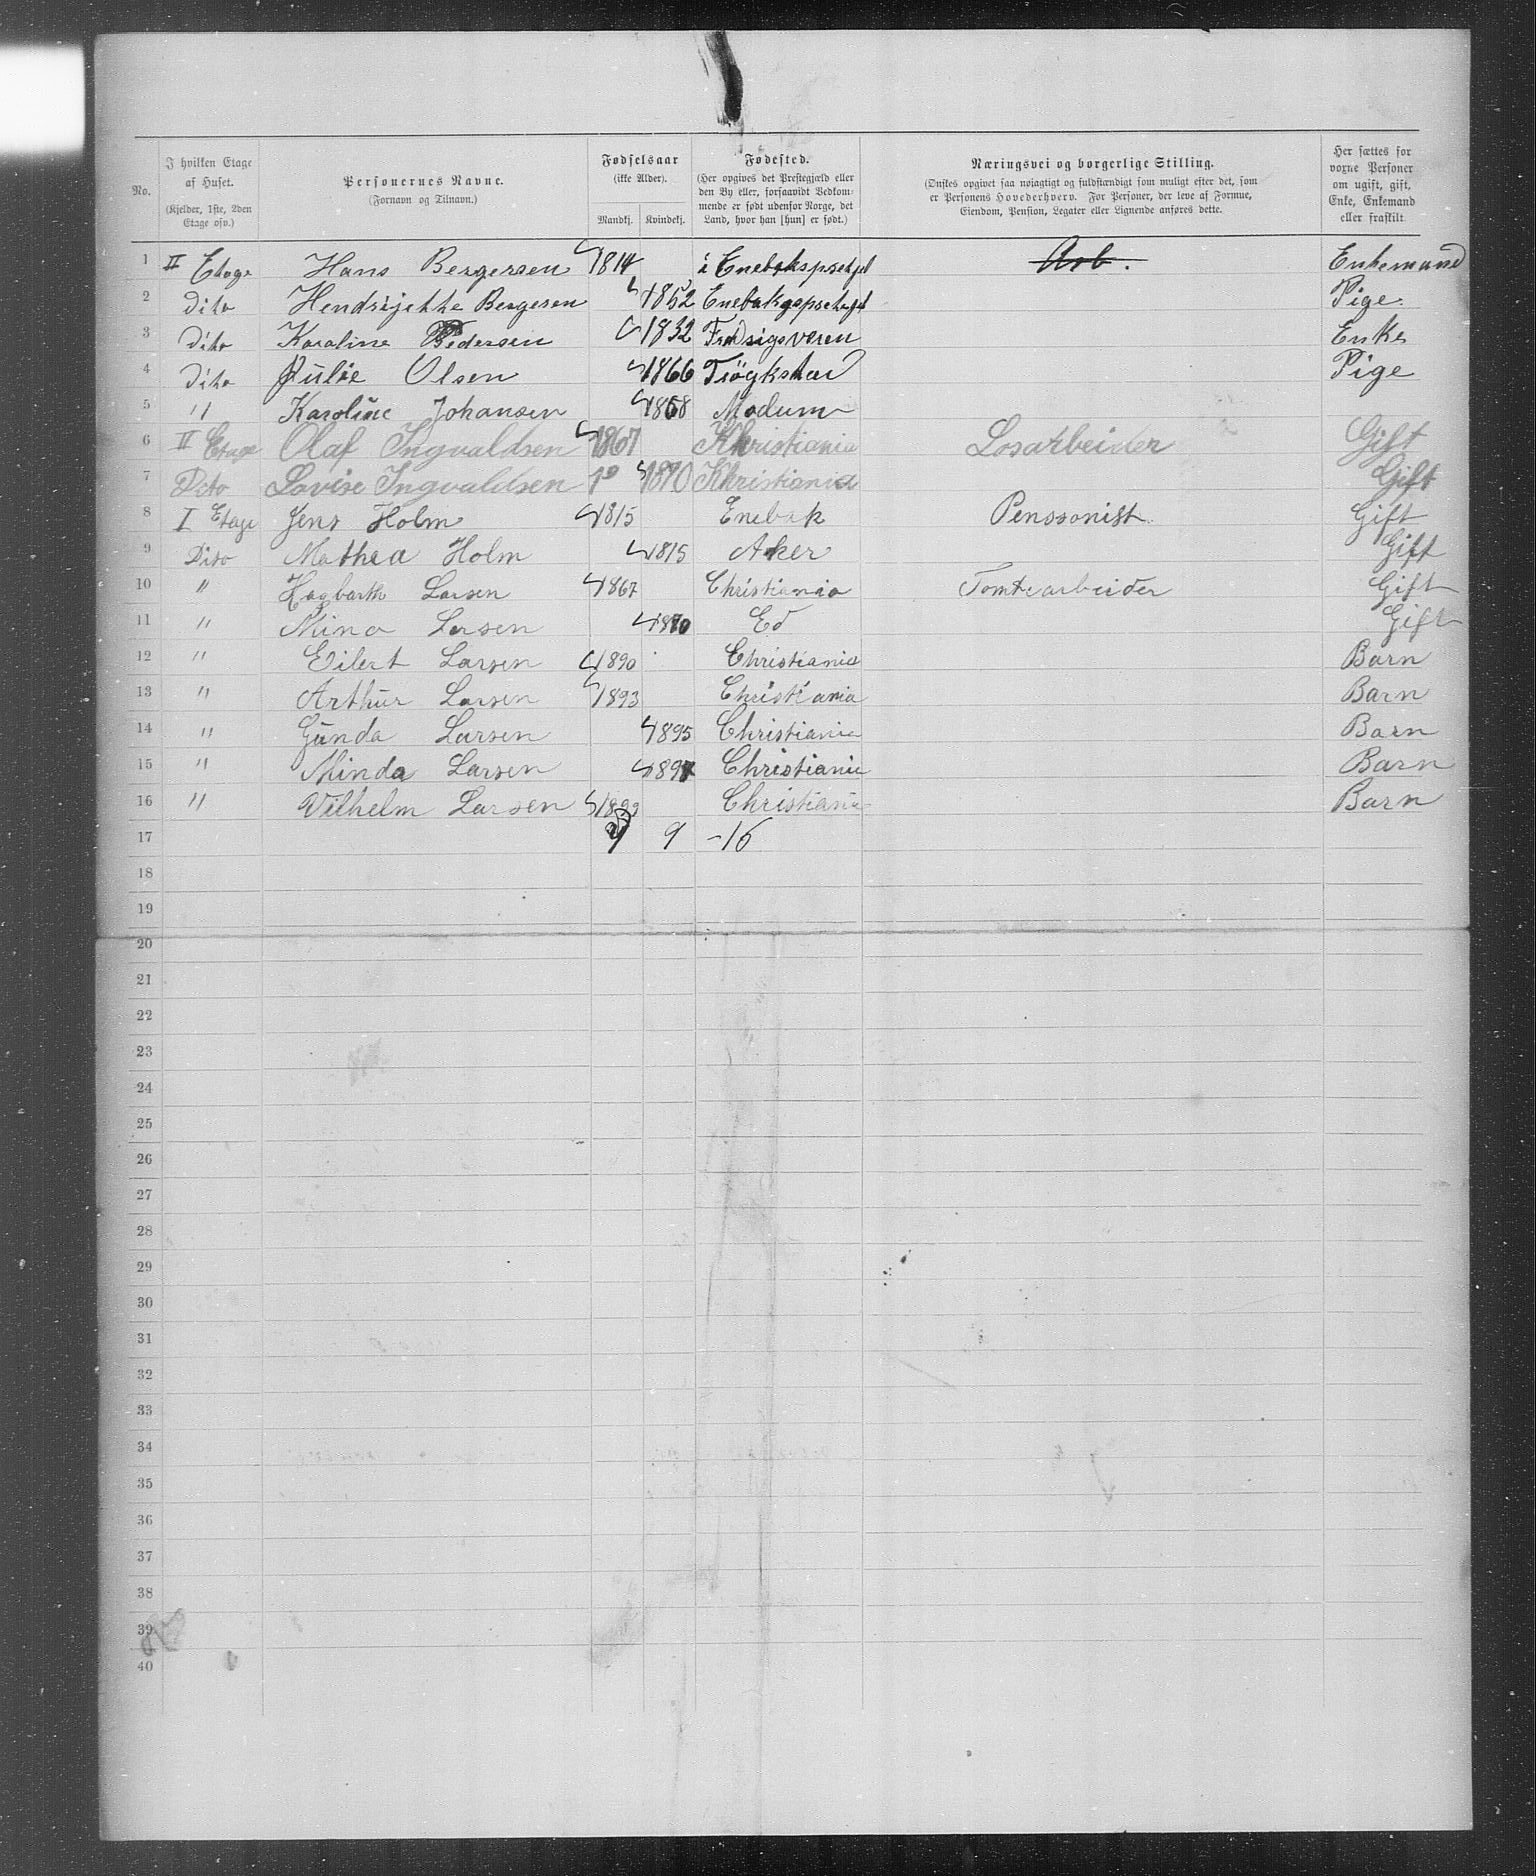 No. | I hvilken Etage af Huset. (Kjelder, 1ste, 2den Etage osv.) | Personernes Navne. (Fornavn og Tilnavn.) | Fødselsaar (ikke Alder). Mandkj. | Kvindekj. | Fødested. (Her opgives det Prestegjæld eller den By eller, forsaavidt Vedkommende er født udenfor Norge, det Land, hvor han [hun] er født.) | Næringsvei og borgerlige Stilling. (Ønskes opgivet saa nøiagtigt og fuldstændigt som muligt efter det, som er Personens Hovederhverv. For Personer, der leve af Formue, Eiendom, Pension, Legater eller Lignende anføres dette. | Her sættes for voxne Personer om ugift, gift, Enke, Enkemand eller fraskilt
1 II Etage Hans Bergersen 1814 i Enebaksprestgel Arb. Enkemand
2 Dito Hendrijette Bergesen 1852 Pige.
3 Dito Karoline Pedersen 1832 Enke
4 Dito Julie Olsen 1866 Pige
5 " Karoline Johansen 1868 Modum
6 II Etage Olaf Ingvaldsen 1867 Khristiania Losarbeider Gift
7 Dito Lovise Ingvaldsen 1870 Khristiania Gift
8 I Etage Jens Holm 1815 Enebak Penssonist. Gift
9 Dito Mathea Holm 1815 Aker Gift
10 " Hagbarth Larsen 1867 Christiania Tomtearbeider Gift
11 " Mina Larsen 1870 Ed Gift
12 " Eilert Larsen 1890 Christiania Barn
13 " Arthur Larsen 1893 Christiania Barn
14 " Gunda Larsen 1895 Christiania Barn
15 " Minda Larsen 1897 Christiania Barn
16 " Vilhelm Larsen 1899 Christiania Barn
17 7 9 -16
18
19
20
21
22
23
24
25
26
27
28
29
30
31
32
33
34
35
36
37
38
39
40